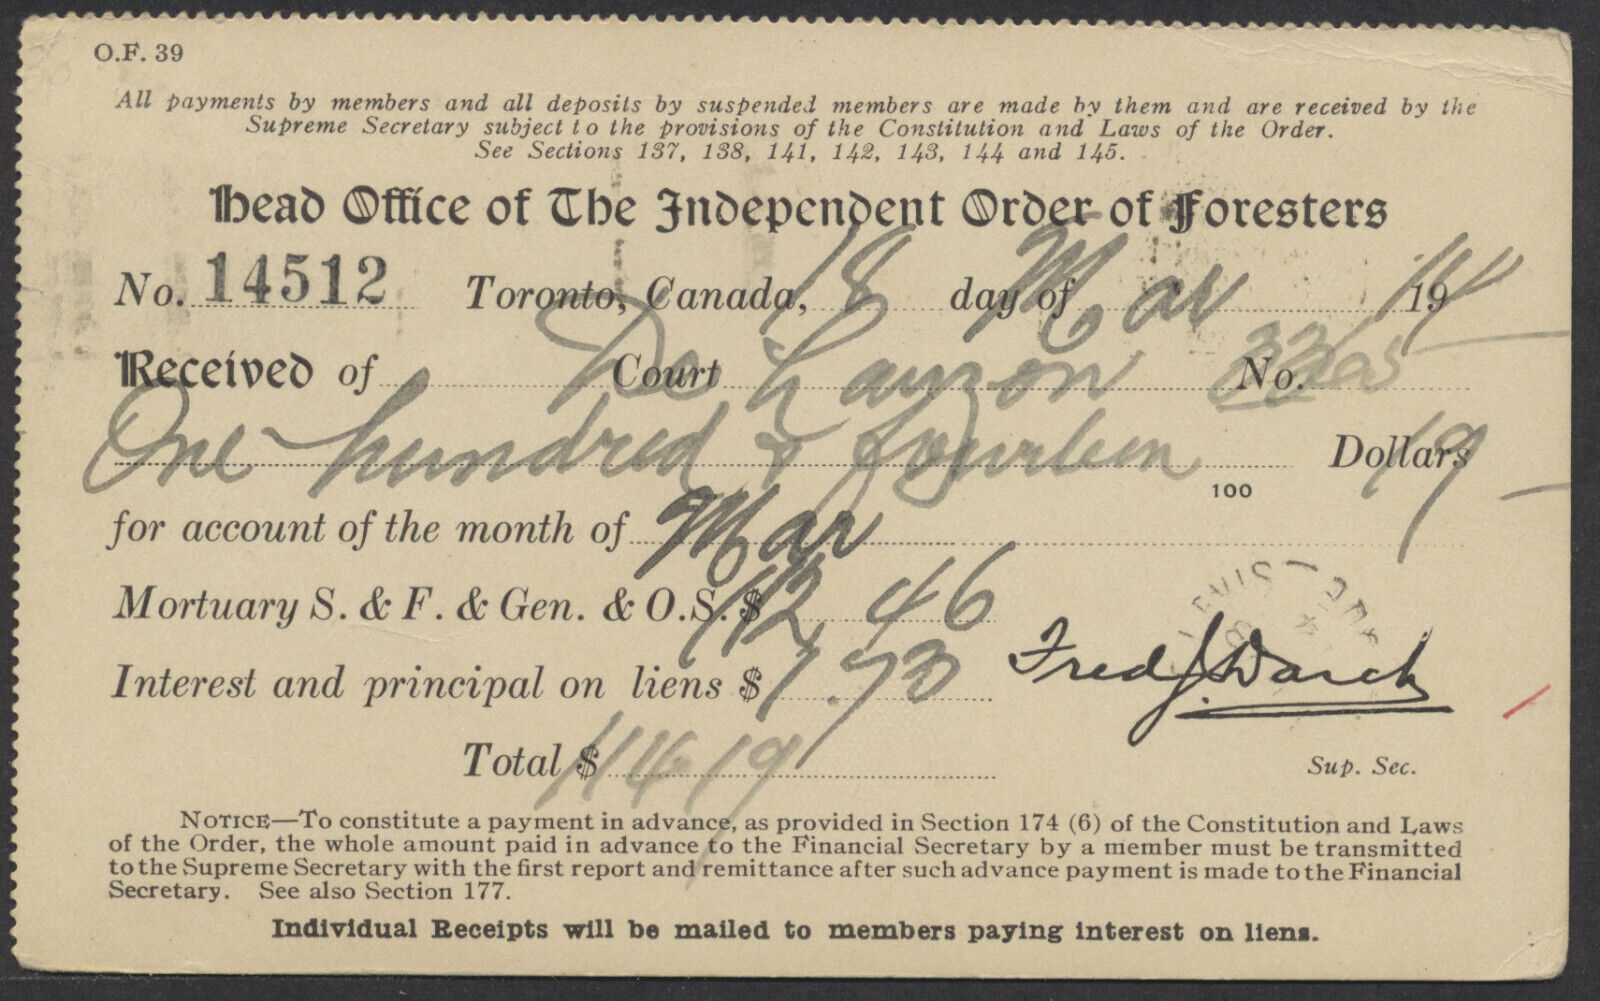 O.F. 39
All payments by members and all deposits by suspended members are made by them and are received by the
Supreme Secretary subject to the provisions of the Constitution and Laws of the Order.
See Sections 137, 138, 141, 142, 143, 144 and 145.
Head Office of The Independent Order of Foresters
No. 14512 Toronto, Canada, 18 day of Mar 1914
Received of Court De Lauzon No. 3365
One hundred & fourteen 19/100 Dollars
for account of the month of Mar
Mortuary S. & F. & Gen. & O.S. $ 112.46
Interest and principal on liens $ 1.73
Fred J. Darch
Total $ 114.19
Sup. Sec.
NOTICE—To constitute a payment in advance, as provided in Section 174 (6) of the Constitution and Laws
of the Order, the whole amount paid in advance to the Financial Secretary by a member must be transmitted
to the Supreme Secretary with the first report and remittance after such advance payment is made to the Financial
Secretary. See also Section 177.
Individual Receipts will be mailed to members paying interest on liens.